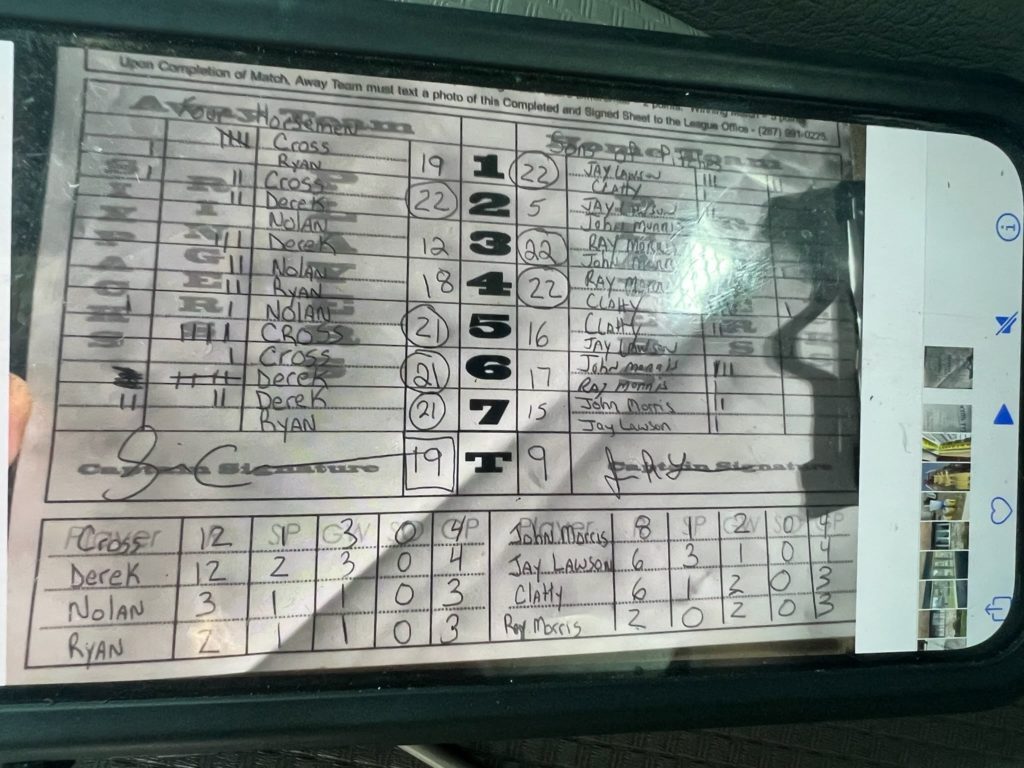 Upon Completion of Match, Away Team must text a photo of this Completed and Signed Sheet to the League Office - (267) 991-0225
Four Horsemen
Cross
RYAN 19 1 22 JAY LAWSON
CLATTY
Cross
Derek 22 2 5 JAY LAWSON
John Morris
NOLAN
Derek 12 3 22 RAY MORRIS
John
NOLAN
RYAN 18 4 22 RAY
CLATTY
NOLAN
CROSS 21 5 16 CLATTY
JAY LAWSON
Cross
Derek 21 6 17 John
RAY MORRIS
Derek
RYAN 21 7 15 John Morris
Jay Lawson
Captain Signature 19 T 9 Captain Signature
Player SP GW SO GP Player SP GW SO GP
Cross 12 1 3 0 4 John Morris 8 1 2 0 4
Derek 12 2 3 0 4 JAY LAWSON 6 3 1 0 4
NOLAN 3 1 1 0 3 Clatty 6 1 2 0 3
RYAN 2 1 1 0 3 Ray Morris 2 0 2 0 3